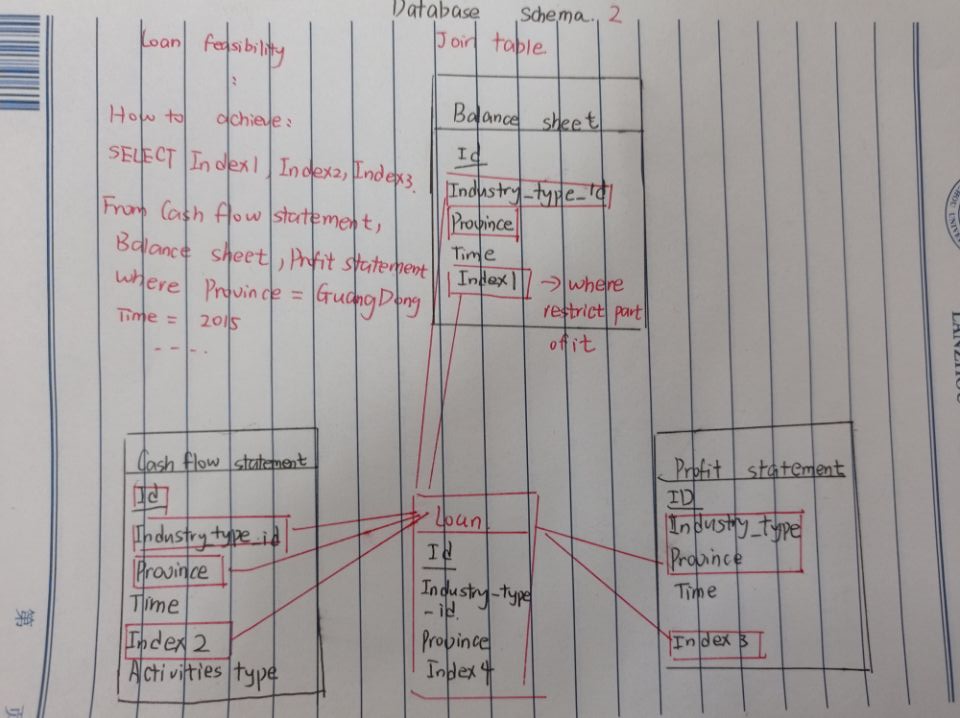 Database Schema. 2
Loan feasibility
:
How to achieve:
SELECT Index1, Index2, Index3.
From Cash flow statement,
Balance sheet, Profit statement
where Province = GuangDong
Time = 2015
- - - .
Join table
Balance sheet
Id
Industry_type_id
Province
Time
Index1 → where
restrict part
of it
Cash flow statement
Id
Industry_type_id
Province
Time
Index 2
Activities type
Loan.
Id
Industry_type
_id.
Province
Index4
Profit statement
ID
Industry_type
Province
Time
Index 3
LANZHOU
第